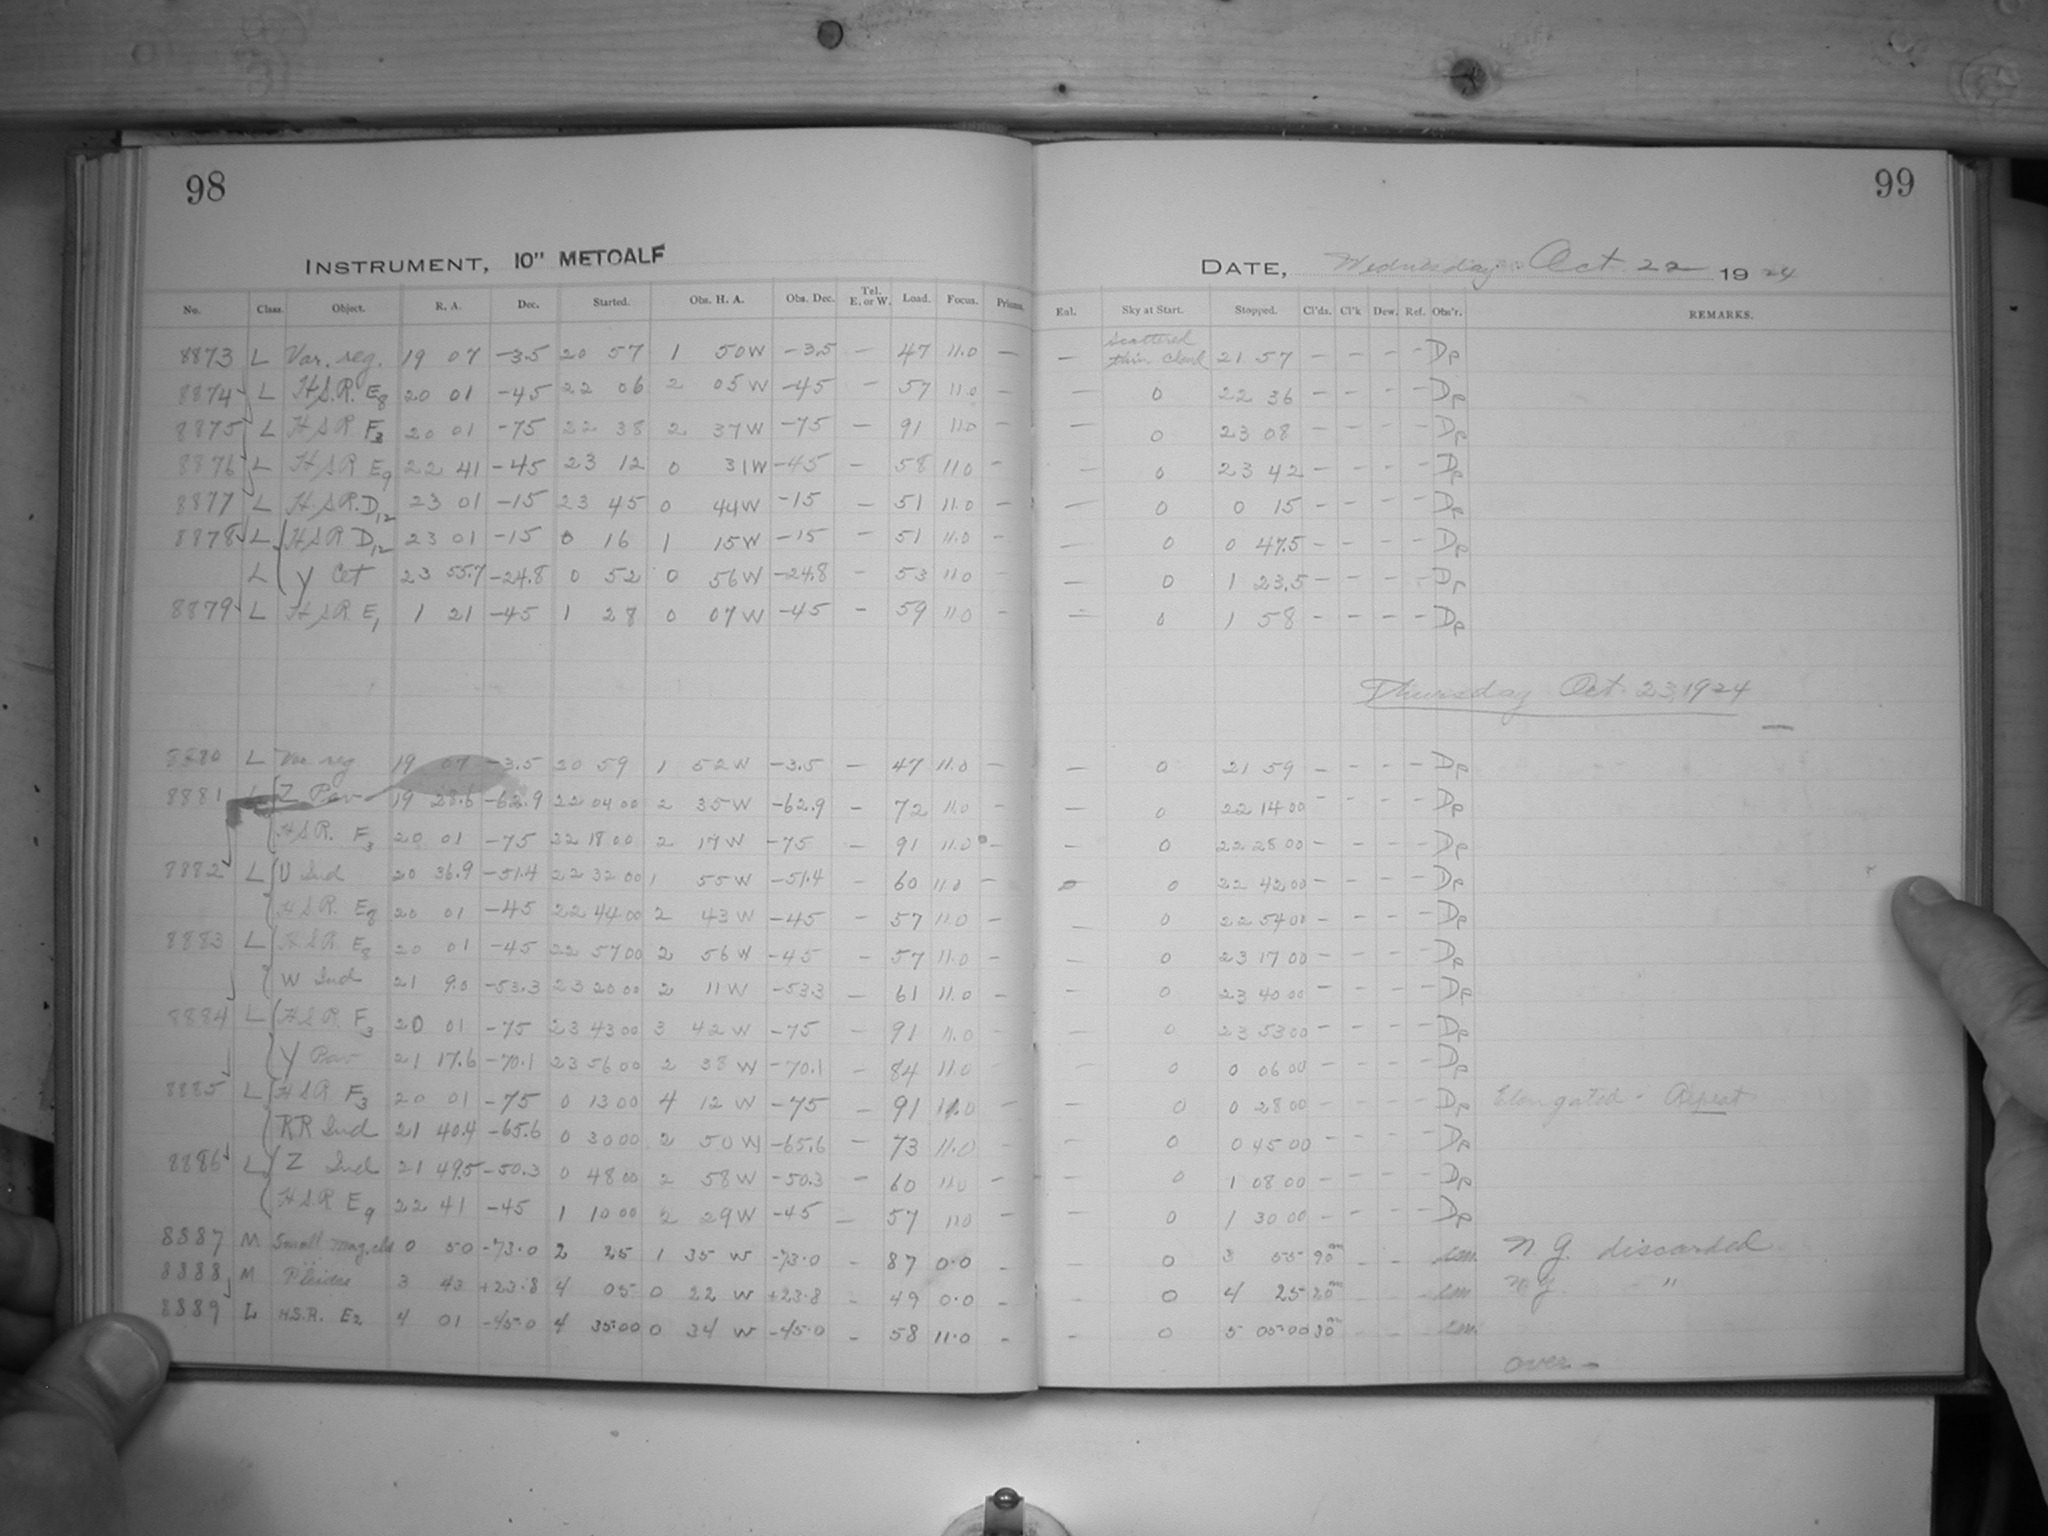 98
99
INSTRUMENT, 10" METCALF
DATE, Wednesday Oct 22 1924
No. Class. Object. R. A. Dec. Started. Obs. H. A. Obs. Dec. Tel. E. or W. Load. Focus. Prisms. Enl. Sky at Start. Stopped. Cl'ds. Cl'k Dew. Ref. Obs'r. REMARKS.
8873 L Var. reg. 19 07 -3.5 20 57 1 50W -3.5 - 47 11.0 - - scattered thin cloud 21 57 - - - - De
8874 L H.S.R. E8 20 01 -45 22 06 2 05W -45 - 57 11.0 - - 0 22 36 - - - - De
8875 L H S R F3 20 01 -75 22 38 2 37W -75 - 91 11.0 - - 0 23 08 - - - - De
8876 L H S R E9 22 41 -45 23 12 0 31W -45 - 58 11.0 - - 0 23 42 - - - - De
8877 L H.S.R. D12 23 01 -15 23 45 0 44W -15 - 51 11.0 - - 0 0 15 - - - - De
8878 L H S R D12 23 01 -15 0 16 1 15W -15 - 51 11.0 - - 0 0 47.5 - - - - De
L Y Cet 23 55.7 -24.8 0 52 0 56W -24.8 - 53 11.0 - - 0 1 23.5 - - - - De
8879 L H S R E1 1 21 -45 1 28 0 07W -45 - 59 11.0 - - 0 1 58 - - - - De
Thursday Oct. 23, 1924
8880 L Var reg 19 07 -3.5 20 59 1 52W -3.5 - 47 11.0 - - 0 21 59 - - - - De
8881 L Z Pav 19 28.6 -62.9 22 04 00 2 35W -62.9 - 72 11.0 - - 0 22 14 00 - - - - De
H S R. F3 20 01 -75 22 18 00 2 17W -75 - 91 11.0 - - 0 22 28 00 - - - - De
8882 L U Ind 20 36.9 -51.4 22 32 00 1 55W -51.4 - 60 11.0 - 0 22 42 00 - - - - De
H.S.R. E8 20 01 -45 22 44 00 2 43W -45 - 57 11.0 - - 0 22 54 00 - - - - De
8883 L H.S.R. E8 20 01 -45 22 57 00 2 56W -45 - 57 11.0 - - 0 23 17 00 - - - - De
W Ind 21 9.0 -53.3 23 20 00 2 11W -53.3 - 61 11.0 - - 0 23 40 00 - - - - De
8884 L H.S.R. F3 20 01 -75 23 43 00 3 42W -75 - 91 11.0 - - 0 23 53 00 - - - - De
Y Pav 21 17.6 -70.1 23 56 00 2 38W -70.1 - 84 11.0 - - 0 0 06 00 - - - - De
8885 L H S R F3 20 01 -75 0 13 00 4 12 W -75 - 91 11.0 - - 0 0 28 00 - - - - De Elongated - Repeat
RR Ind 21 40.4 -65.6 0 30 00 2 50 W -65.6 - 73 11.0 - 0 0 45 00 - - - - De
8886 L Z Ind 21 49.5 -50.3 0 48 00 2 58W -50.3 - 60 11.0 - - 0 1 08 00 - - - - De
H.S.R E9 22 41 -45 1 10 00 2 29W -45 - 57 11.0 - - 0 1 30 00 - - - - De
8887 M Small Mag. cld 0 50 -73.0 2 25 1 35 W -73.0 - 87 0.0 - - 0 3 55 90m - - N G. discarded
8888 M Pleides 3 43 +23.8 4 05 0 22 W +23.8 - 49 0.0 - - 0 4 25 20m - - N.g. "
8889 L H.S.R. E2 4 01 -45.0 4 35:00 0 34 W -45.0 - 58 11.0 - - 0 5 05:00 30m - -
over -